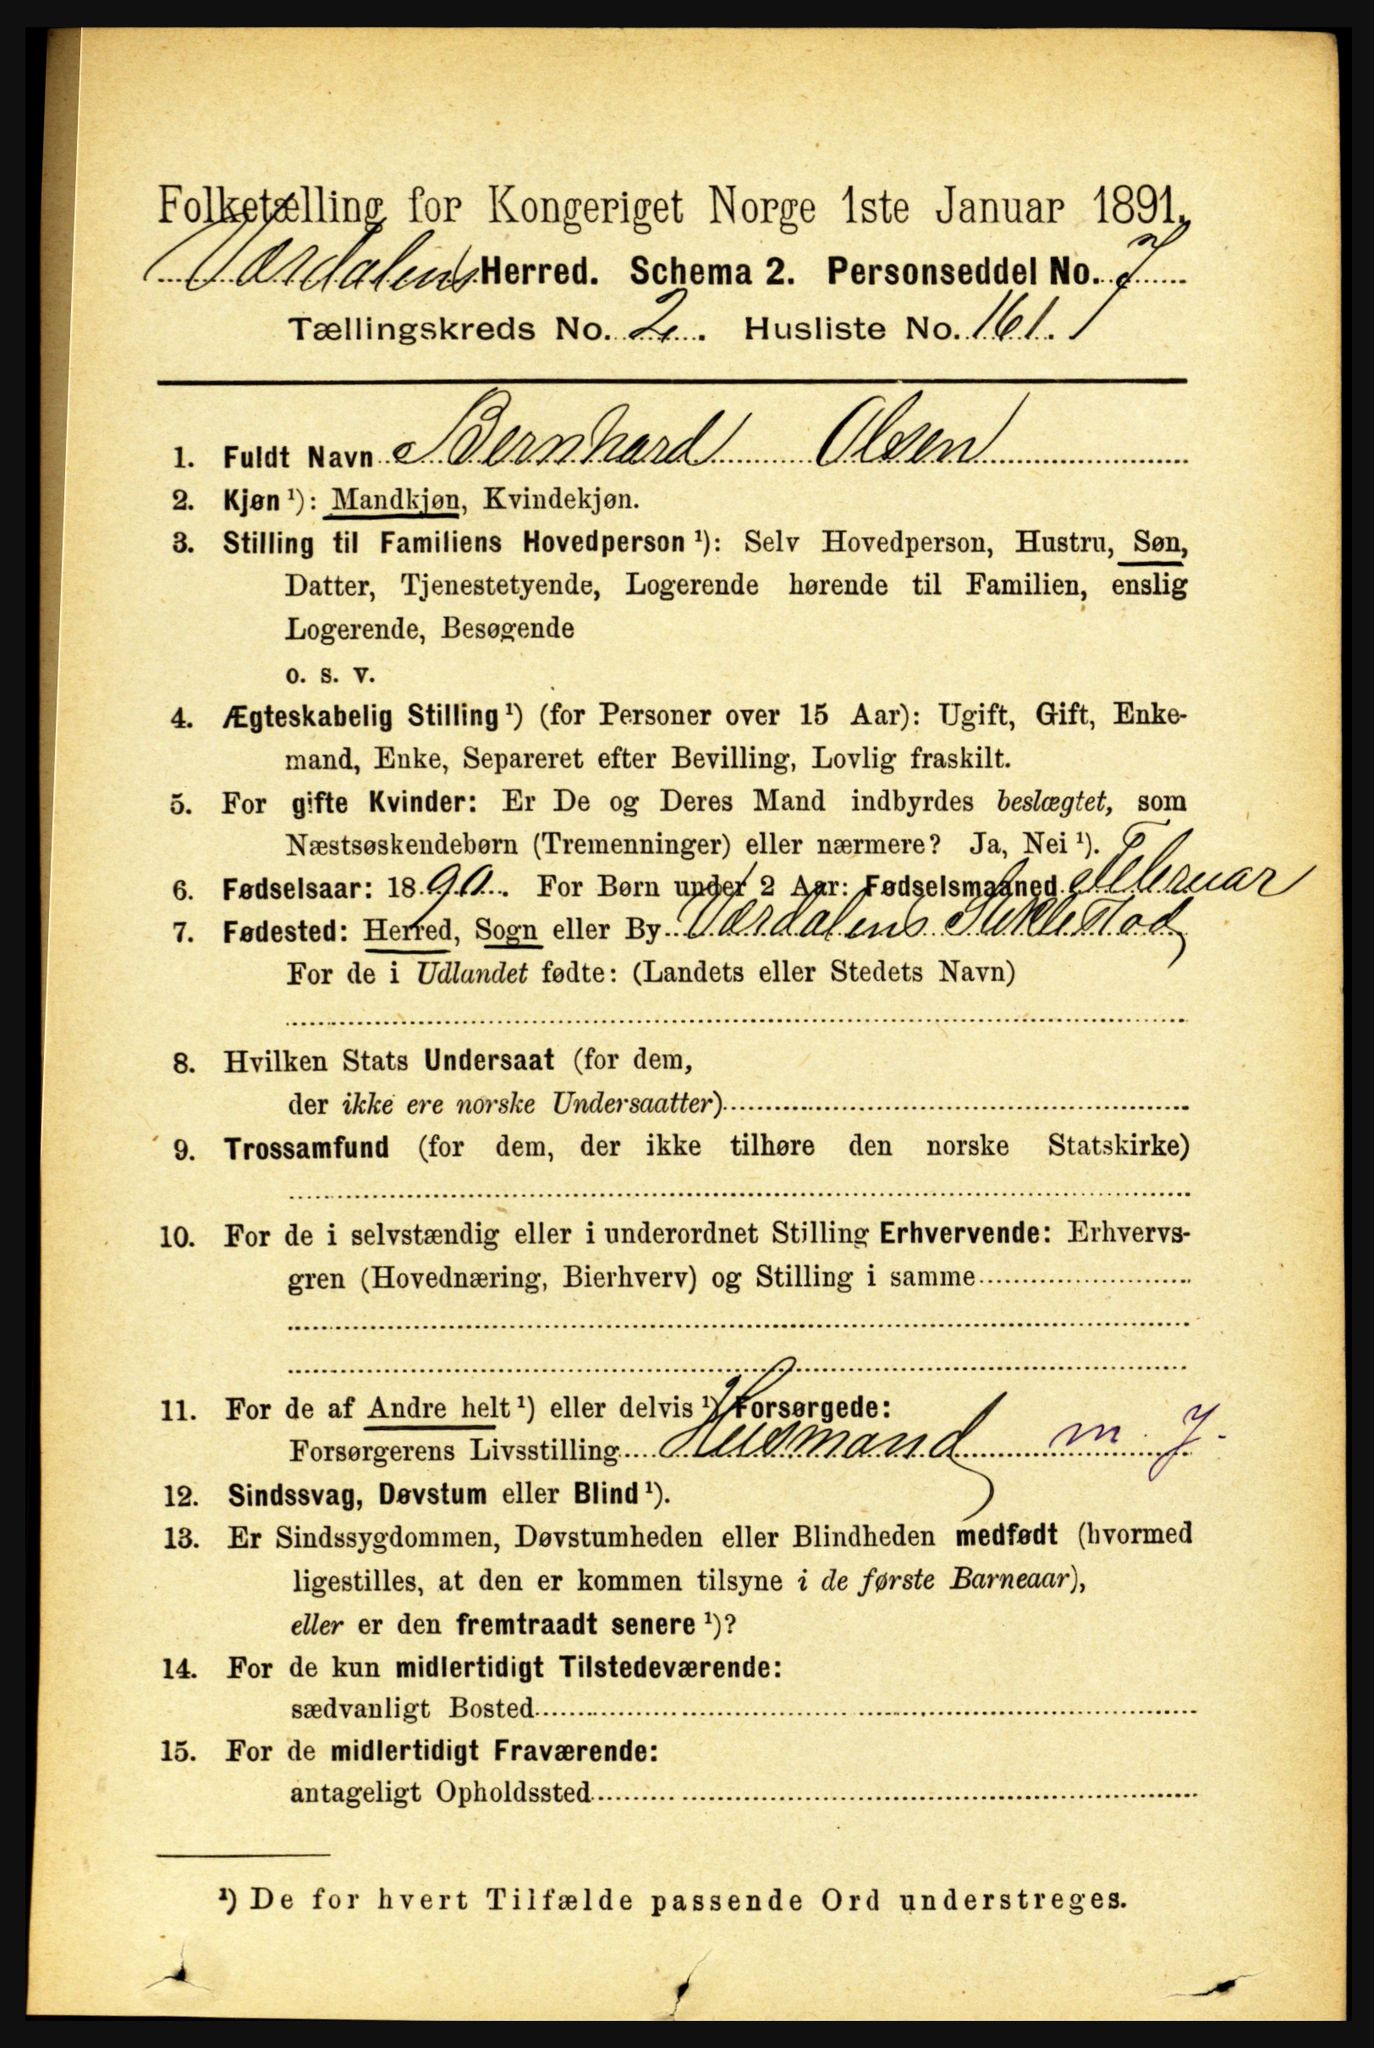 Folketælling for Kongeriget Norge 1ste Januar 1891.
Værdalens Herred. Schema 2. Personseddel No. 7
Tællingskreds No. 2. Husliste No. 161.
1. Fuldt Navn Bernhard Olsen
2. Kjøn ¹): Mandkjøn, Kvindekjøn.
3. Stilling til Familiens Hovedperson ¹): Selv Hovedperson, Hustru, Søn,
Datter, Tjenestetyende, Logerende hørende til Familien, enslig
Logerende, Besøgende
o. s. v.
4. Ægteskabelig Stilling ¹) (for Personer over 15 Aar): Ugift, Gift, Enke-
mand, Enke, Separeret efter Bevilling, Lovlig fraskilt.
5. For gifte Kvinder: Er De og Deres Mand indbyrdes beslægtet, som
Næstsøskendebørn (Tremenninger) eller nærmere? Ja, Nei ¹).
6. Fødselsaar: 1890. For Børn under 2 Aar: Fødselsmaaned Februar
7. Fødested: Herred, Sogn eller By Værdalens Stiklestad
For de i Udlandet fødte: (Landets eller Stedets Navn)
8. Hvilken Stats Undersaat (for dem,
der ikke ere norske Undersaatter)
9. Trossamfund (for dem, der ikke tilhøre den norske Statskirke)
10. For de i selvstændig eller i underordnet Stilling Erhvervende: Erhvervs-
gren (Hovednæring, Bierhverv) og Stilling i samme
11. For de af Andre helt ¹) eller delvis ¹) Forsørgede:
Forsørgerens Livsstilling Husmand m. J.
12. Sindssvag, Døvstum eller Blind ¹).
13. Er Sindssygdommen, Døvstumheden eller Blindheden medfødt (hvormed
ligestilles, at den er kommen tilsyne i de første Barneaar),
eller er den fremtraadt senere ¹)?
14. For de kun midlertidigt Tilstedeværende:
sædvanligt Bosted
15. For de midlertidigt Fraværende:
antageligt Opholdssted
¹) De for hvert Tilfælde passende Ord understreges.